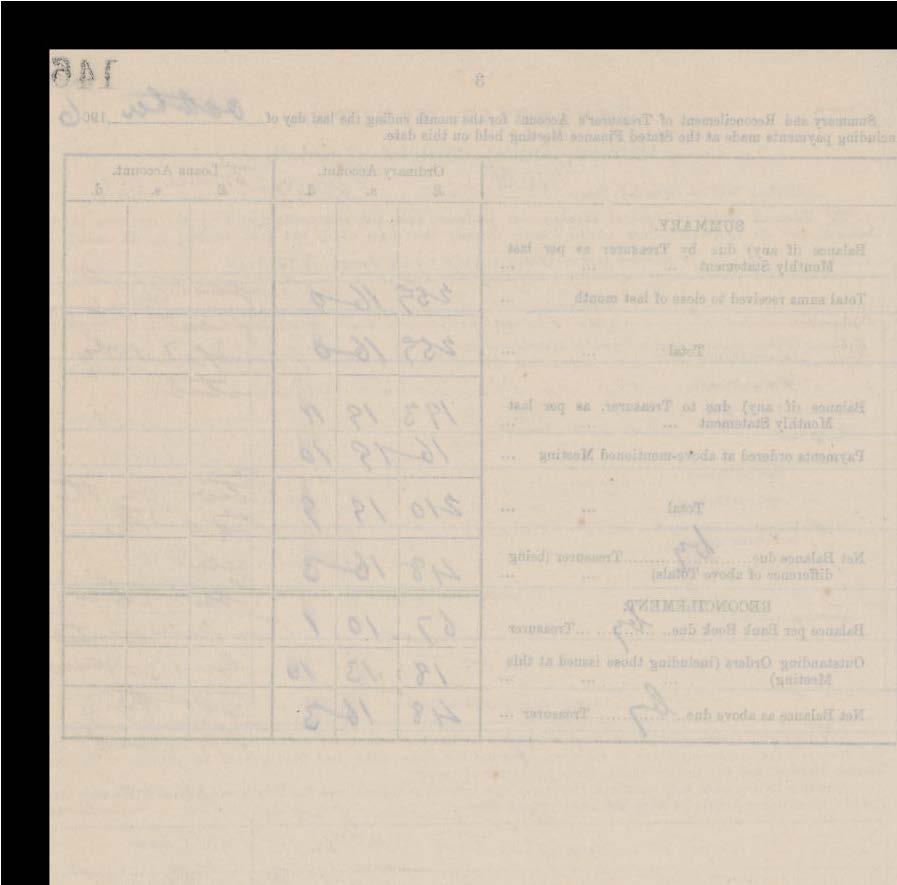 146
3
Summary and Reconcilement of Treasurer's Account for the month ending the last day of October 1906,
including payments made at the Stated Finance Meeting held on this date.
Ordinary Account. Loans Account.
£ s. d. £ s. d.
SUMMARY.
Balance (if any) due by Treasurer as per last
Monthly Statement ... ... ...
Total sums received to close of last month ... 259 16 0
Total ... ... 259 16 0
Balance (if any) due to Treasurer, as per last
Monthly Statement ... ... ... 193 19
Payments ordered at above-mentioned Meeting ... 16 19 10
Total ... ... 210 19 9
Net Balance due by Treasurer (being
difference of above Totals) ... ... 48 16 3
RECONCILEMENT.
Balance per Bank Book due by Treasurer 67 10 1
Outstanding Orders (including those issued at this
Meeting) ... ... ... 18 13 10
Net Balance as above due by Treasurer ... 48 16 3